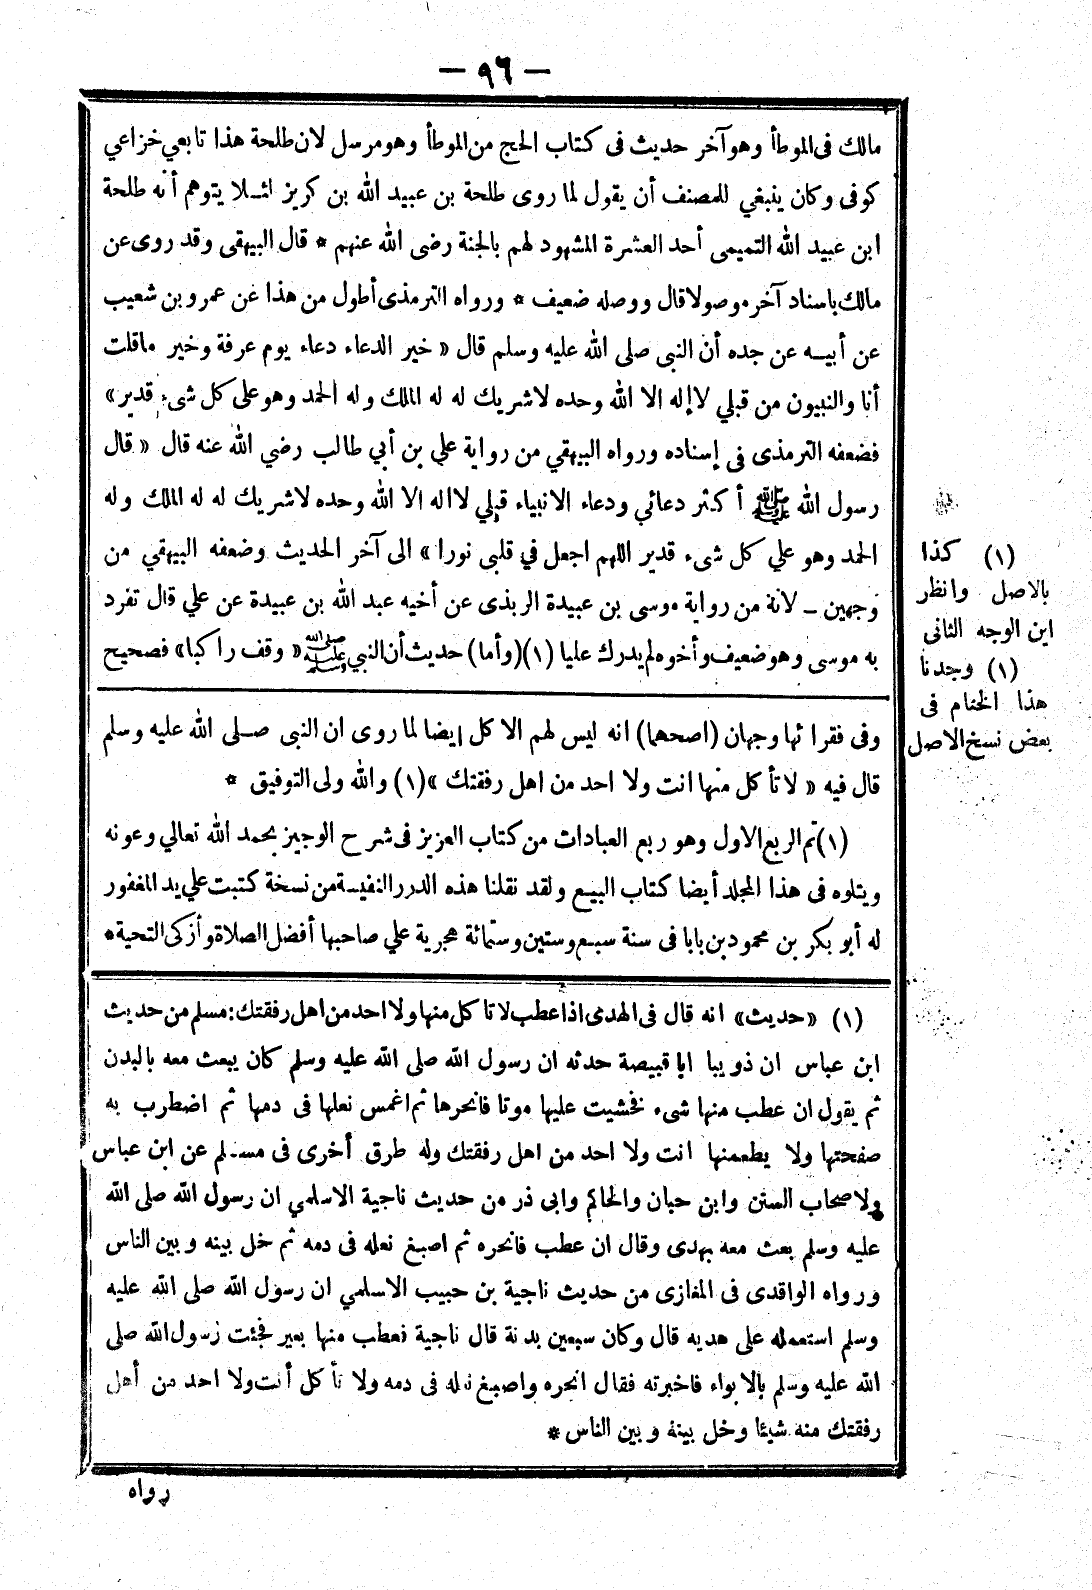 — ٩٦ —
مالك فى الموطأ وهو آخر حديث فى كتاب الحج من الموطأ وهو مرسل لان طلحة هذا تابعي خزاعي
كوفى وكان ينبغي للمصنف أن يقول لما روى طلحة بن عبيد الله بن كريز لئلا يتوهم أنه طلحة
ابن عبيد الله التميمى أحد العشرة المشهود لهم بالجنة رضى الله عنهم * قال البيهقى وقد روى عن
مالك باسناد آخر موصولا قال ووصله ضعيف * ورواه الترمذى أطول من هذا عن عمرو بن شعيب
عن أبيه عن جده أن النبى صلى الله عليه وسلم قال « خير الدعاء دعاء يوم عرفة وخير ماقلت
أنا والنبيون من قبلي لاإله الا الله وحده لاشريك له له الملك وله الحمد وهو على كل شىء قدير »
فضعفه الترمذى فى إسناده ورواه البيهقي من رواية علي بن أبي طالب رضي الله عنه قال « قال
رسول الله ﷺ أكثر دعائي ودعاء الانبياء قبلي لااله الا الله وحده لاشريك له له الملك وله
الحمد وهو علي كل شىء قدير اللهم اجعل في قلبى نورا » الى آخر الحديث وضعفه البيهقي من
وجهين ــ لانه من رواية موسى بن عبيدة الربذى عن أخيه عبد الله بن عبيدة عن علي قال تفرد
به موسى وهو ضعيف وأخوه لم يدرك عليا (١) (وأما) حديث أن النبي ﷺ « وقف راكبا » فصحيح
(١) كذا
بالاصل وانظر
اين الوجه الثانى
(١) وجدنا
هذا الختام فى
بعض نسخ الاصل
وفى فقرائها وجهان (اصحهما) انه ليس لهم الاكل ايضا لما روى ان النبى صلى الله عليه وسلم
قال فيه « لا تأكل منها انت ولا احد من اهل رفقتك » (١) والله ولى التوفيق *
(١) تم الربع الاول وهو ربع العبادات من كتاب العزيز فى شرح الوجيز بحمد الله تعالي وعونه
ويتلوه فى هذا المجلد أيضا كتاب البيع ولقد نقلنا هذه الدرر النفيسة من نسخة كتبت علي يد المغفور
له أبو بكر بن محمود بن بابا فى سنة سبع وستين وستمائة هجرية علي صاحبها أفضل الصلاة وأزكى التحية *
(١) « حديث » انه قال فى الهدى اذا عطب لا تاكل منها ولا احد من اهل رفقتك: مسلم من حديث
ابن عباس ان ذويبا ابا قبيصة حدثه ان رسول الله صلى الله عليه وسلم كان يبعث معه بالبدن
ثم يقول ان عطب منها شىء فخشيت عليها موتا فانحرها ثم اغمس نعلها فى دمها ثم اضطرب به
صفحتها ولا يطعمنها انت ولا احد من اهل رفقتك وله طرق أخرى فى مسلم عن ابن عباس
ولاصحاب السنن وابن حبان والحاكم وابى ذر من حديث ناجية الاسلمي ان رسول الله صلى الله
عليه وسلم بعث معه بهدى وقال ان عطب فانحره ثم اصبغ نعله فى دمه ثم خل بينه وبين الناس
ورواه الواقدى فى المغازى من حديث ناجية بن حبيب الاسلمي ان رسول الله صلى الله عليه
وسلم استعمله على هديه قال وكان سبعين بدنة قال ناجية فعطب منها بعير فجئت رسول الله صلى
الله عليه وسلم بالابواء فاخبرته فقال انحره واصبغ نعله فى دمه ولا تأكل أنت ولا احد من أهل
رفقتك منه شيئا وخل بينه وبين الناس *
رواه